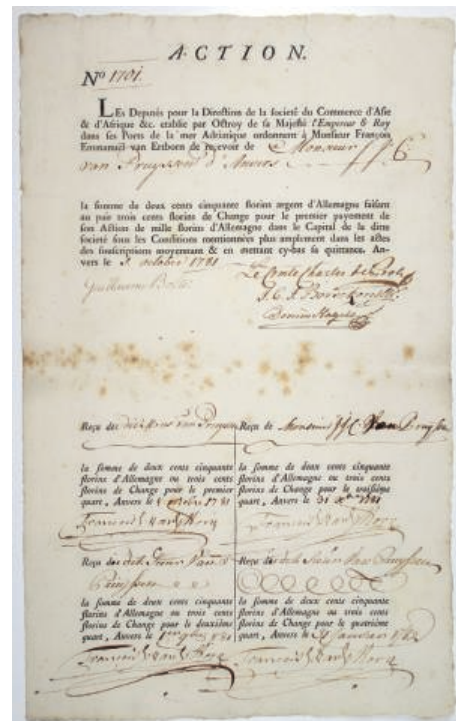 ACTION.
No 1701.
LEs Deputés pour la Direction de la societé du Commerce d'Asie
& d'Afrique &c. etablie par Octroy de sa Majesté l'Empereur & Roy
dans ses Ports de la mer Adriatique ordonnent à Monsieur François
Emmanuel van Ertborn de recevoir de Monsieur
van Pruyssen d'Anvers
la somme de deux cents cinquante florins argent d'Allemagne faisant
au pair trois cents florins de Change pour le premier payement de
son Action de mille florins d'Allemagne dans le Capital de la ditte
societé sous les Conditions mentionnées plus amplement dans les actes
des souscriptions moyennant & en mettant cy-bas sa quittance. An-
vers le octobre 1781
Le Comte Charles de Proli
Guillaume Bolts
Reçu de
la somme de deux cents cinquante
florins d'Allemagne ou trois cents
florins de Change pour le premier
quart, Anvers le 1781
Reçu de Monsieur
la somme de deux cents cinquante
florins d'Allemagne ou trois cents
florins de Change pour le troisième
quart, Anvers le 31 1781
Reçu
la somme de deux cents cinquante
florins d'Allemagne ou trois cents
florins de Change pour le deuxième
quart, Anvers le 1781
Reçu
la somme de deux cents cinquante
florins d'Allemagne ou trois cents
florins de Change pour le quatrième
quart, Anvers le